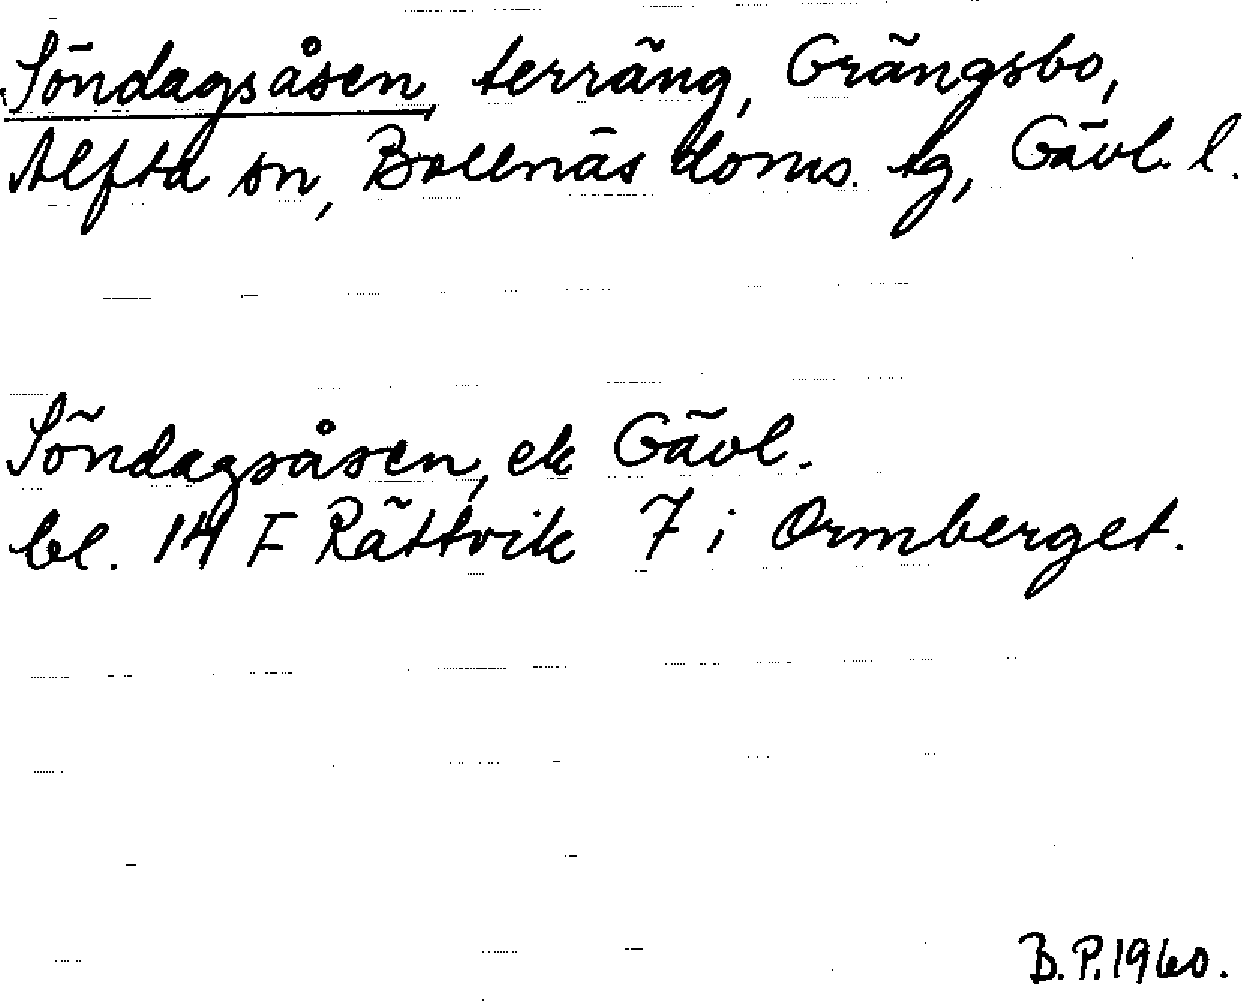 Söndagsåsen, terräng, Grängsbo,
Alfta sn, Bollnäs doms. tg, Gävl. l.
Söndagsåsen, ek Gävl.
bl. 14 F Rättvik 7 i Ormberget.
B.P.1960.